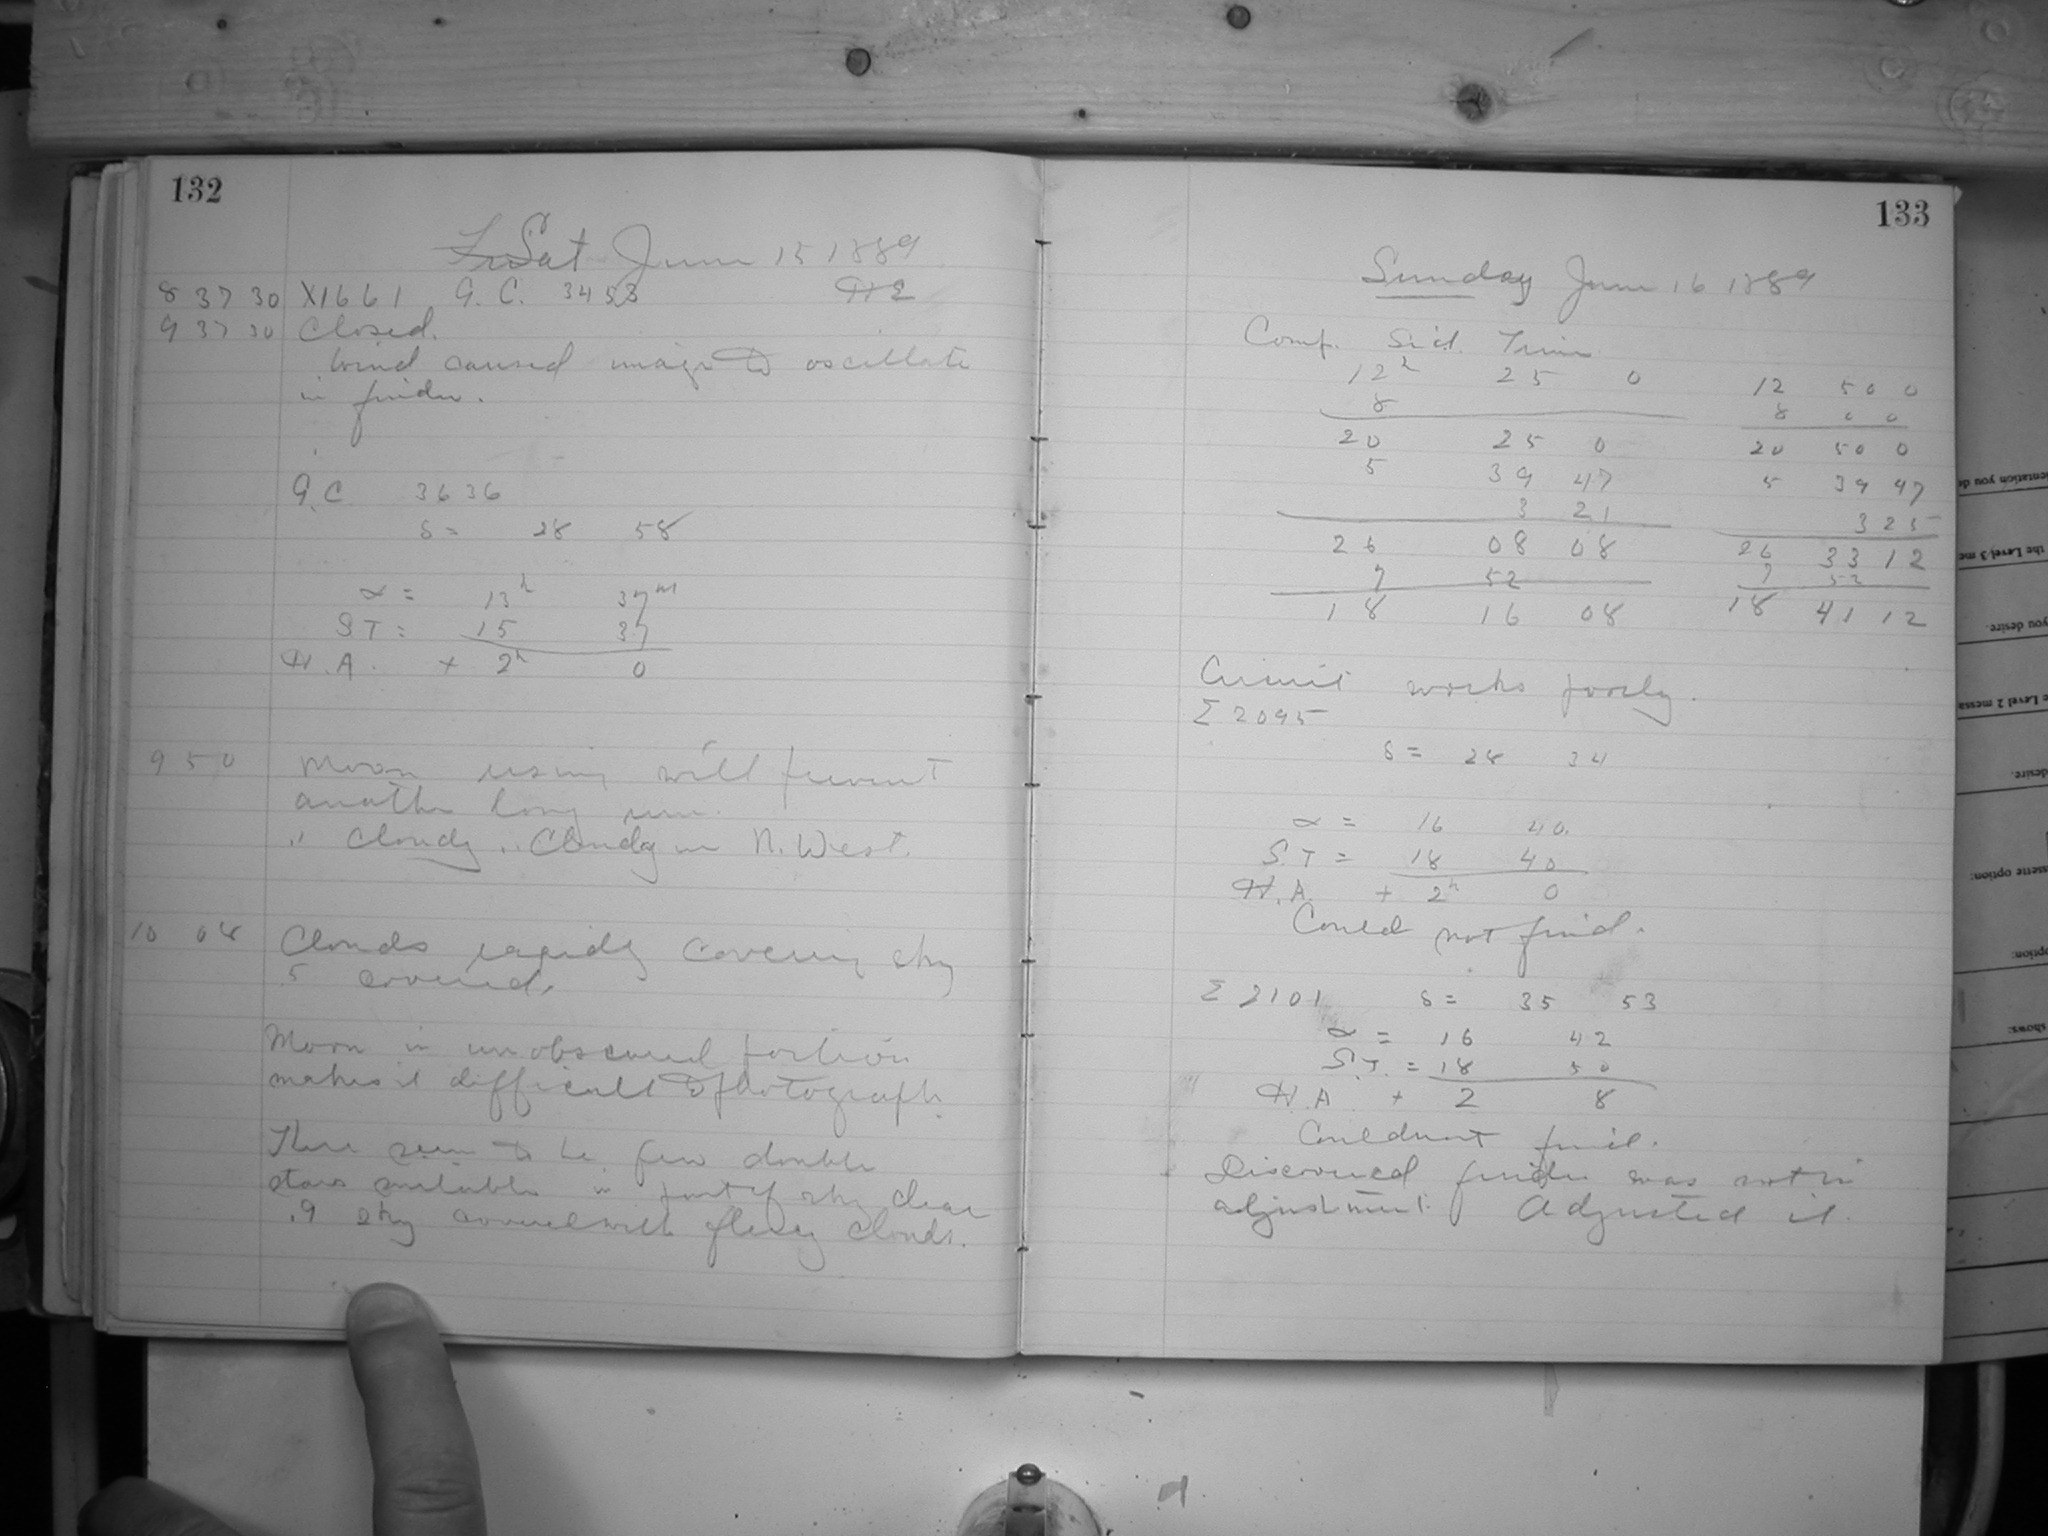 132
Fri Sat June 15 1889
8 37 30 X1661 G. C. 3453 H2
9 37 30 Closed.
Wind caused image to oscillate
in finder.
G.C 3636
δ = 28 58
α = 13h 37m
S T = 15 37
H. A. + 2h 0
9 50 Moon rising will prevent
another long run.
" Cloudy " Cloudy in N. West.
10 08 Clouds rapidly covering sky
.5 covered.
Moon in unobscured portion
makes it difficult to photograph.
There seem to be few double
stars suitable in part of sky clear
.9 sky covered with fleecy clouds.
133
Sunday June 16 1889
Comp. Sid. Time
12h 25 0 12 50 0
8 8 0 0
20 25 0 20 50 0
5 39 47 5 39 47
3 21 3 25
26 08 08 26 33 12
7 52 7 52
18 16 08 18 41 12
Circuit works poorly.
Σ 2095
δ = 28 34
α = 16 40.
S. T = 18 40
H. A. + 2h 0
Could not find.
Σ 2101 δ = 35 53
α = 16 42
S. T. = 18 50
H. A + 2 8
Couldnt find.
Discovered finder was not in
adjustment. Adjusted it.